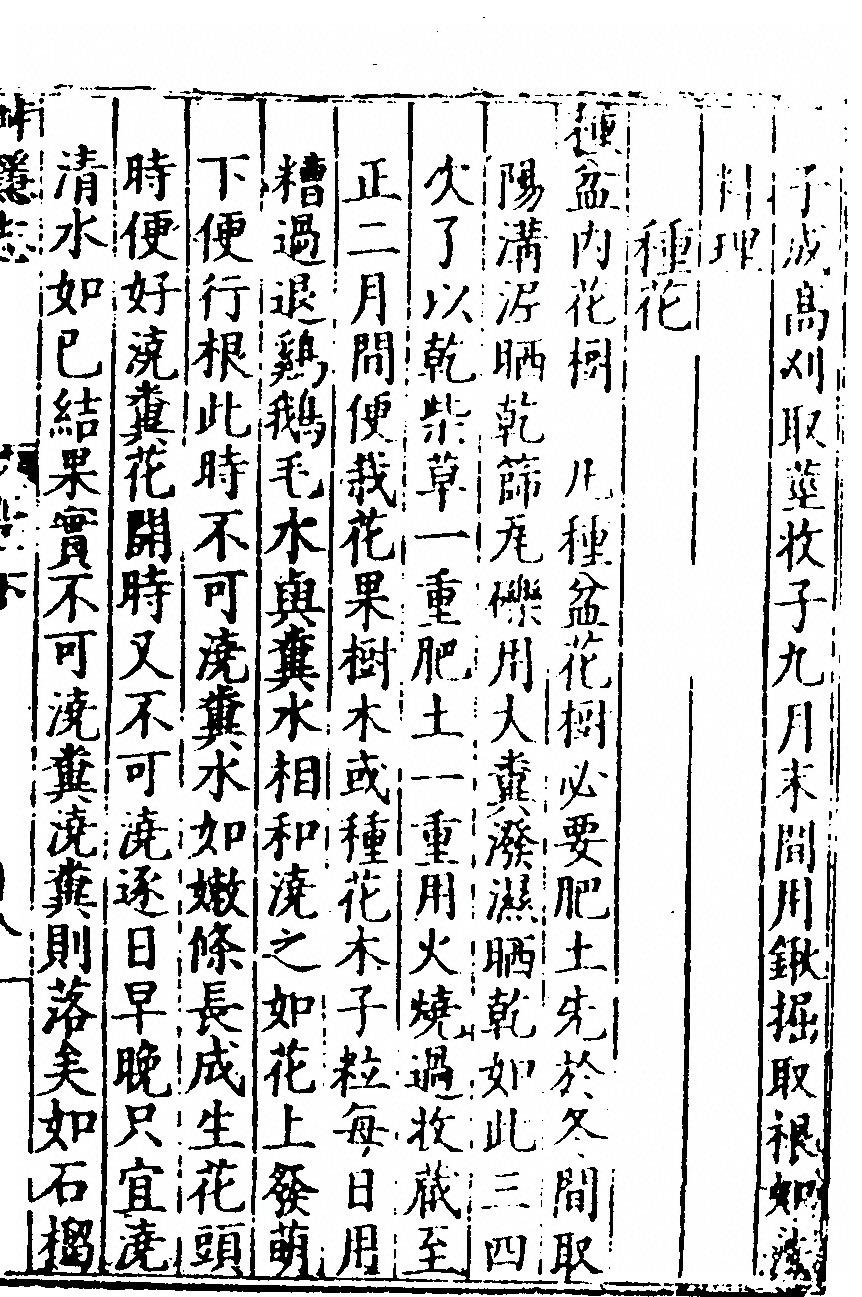 子成高刈取莖收子九月末間用鍬掘取根如法
料理
種花
種盆內花樹　凡種盆花樹必要肥土先於冬間取
陽溝泥晒乾篩瓦礫用大糞潑濕晒乾如此三四
次了以乾柴草一重肥土一重用火燒過收藏至
正二月間便栽花果樹木或種花木子粒每日用
糟過退鷄鵝毛水與糞水相和澆之如花上發萌
下便行根此時不可澆糞水如嫩條長成生花頭
時便好澆糞花開時又不可澆逐日早晚只宜澆
清水如已結果實不可澆糞澆糞則落矣如石榴